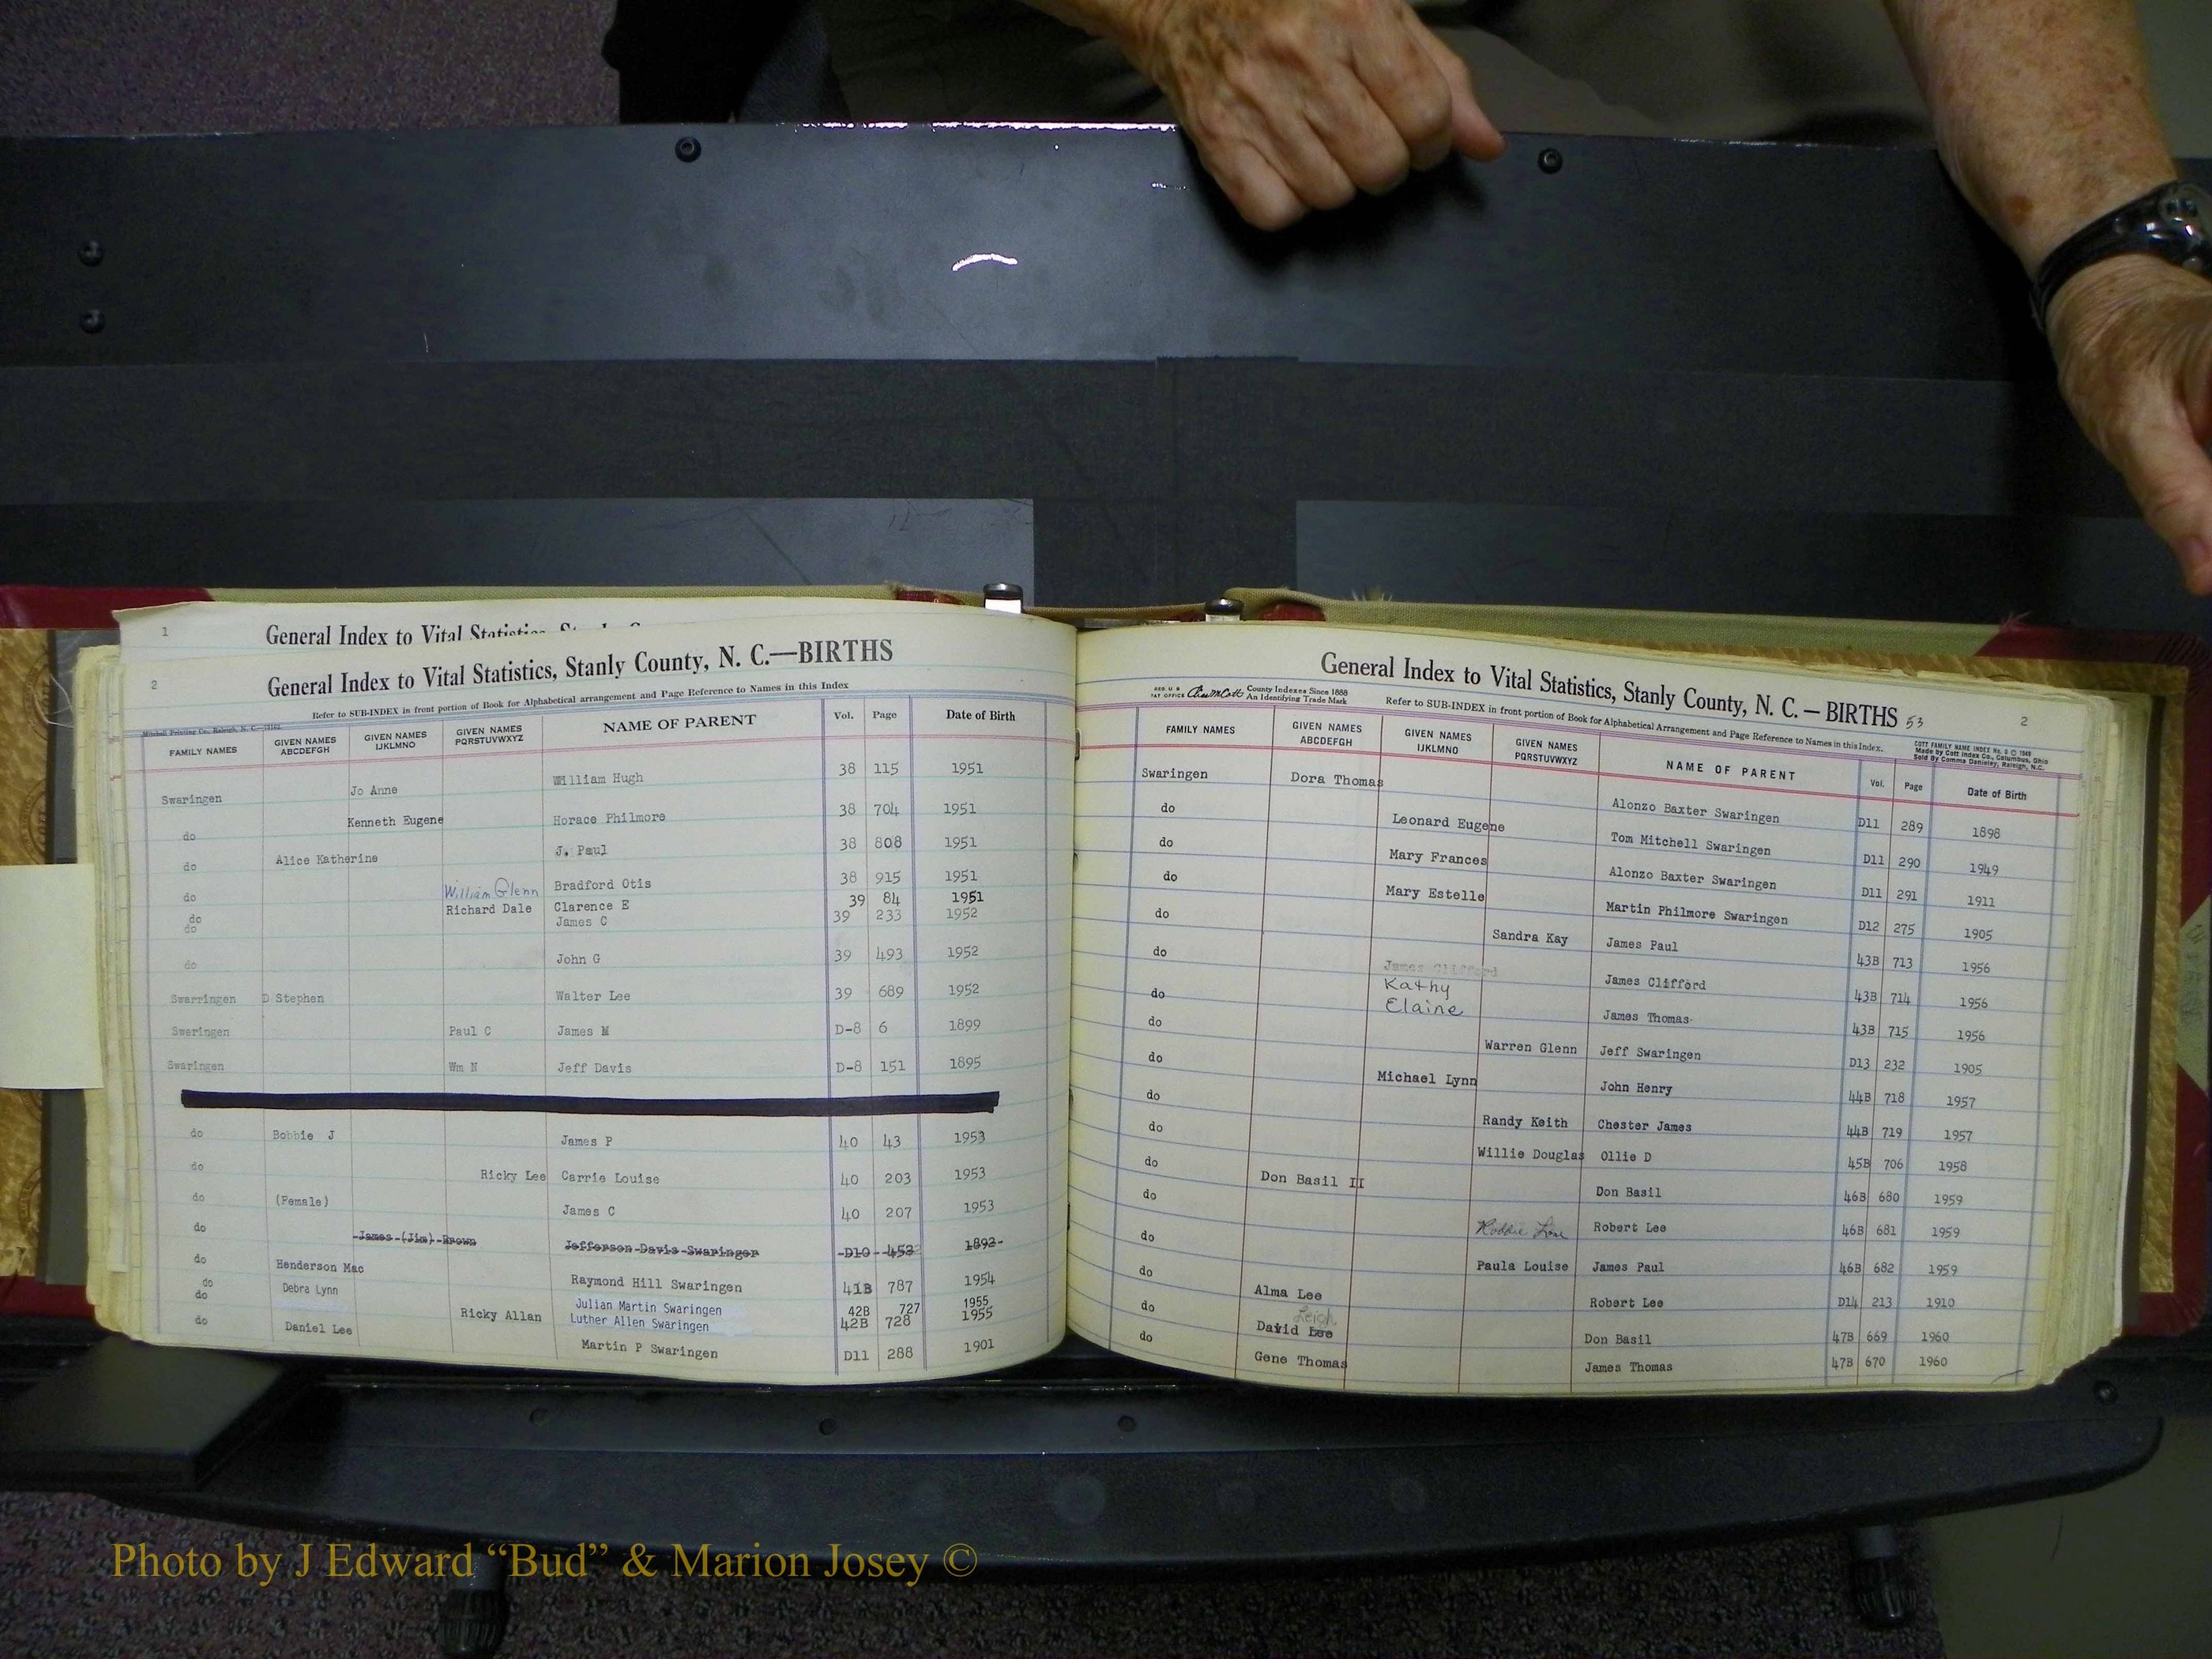 1
General Index to Vital Statistics,
2
General Index to Vital Statistics, Stanly County, N. C.—BIRTHS
Refer to SUB-INDEX in front portion of Book for Alphabetical arrangement and Page Reference to Names in this Index
Mitchell Printing Co., Raleigh, N. C.
FAMILY NAMES GIVEN NAMES ABCDEFGH GIVEN NAMES IJKLMNO GIVEN NAMES PQRSTUVWXYZ NAME OF PARENT Vol. Page Date of Birth
Swaringen Jo Anne William Hugh 38 115 1951
do Kenneth Eugene Horace Philmore 38 704 1951
do Alice Katherine J. Paul 38 808 1951
do William Glenn Bradford Otis 38 915 1951
do Richard Dale Clarence E 39 84 1951
do James C 39 233 1952
do John G 39 493 1952
Swarringen D Stephen Walter Lee 39 689 1952
Sweringen Paul C James M D-8 6 1899
Swaringen Wm N Jeff Davis D-8 151 1895
do Bobbie J James P 40 43 1953
do Ricky Lee Carrie Louise 40 203 1953
do (Female) James C 40 207 1953
do James (Jim) Brown Jefferson Davis Swaringer D10 452 1892
do Henderson Mac Raymond Hill Swaringen 41B 787 1954
do Debra Lynn Julian Martin Swaringen 42B 727 1955
do Ricky Allan Luther Allen Swaringen 42B 728 1955
do Daniel Lee Martin P Swaringen D11 288 1901
General Index to Vital Statistics, Stanly County, N. C. — BIRTHS 53
2
REG. U S PAT OFFICE County Indexes Since 1888 An Identifying Trade Mark
Refer to SUB-INDEX in front portion of Book for Alphabetical Arrangement and Page Reference to Names in this Index.
COTT FAMILY NAME INDEX No. 5 © 1949
Made by Cott Index Co., Columbus, Ohio
Sold By Comma Danieley, Raleigh, N.C.
FAMILY NAMES GIVEN NAMES ABCDEFGH GIVEN NAMES IJKLMNO GIVEN NAMES PQRSTUVWXYZ NAME OF PARENT Vol. Page Date of Birth
Swaringen Dora Thomas Alonzo Baxter Swaringen D11 289 1898
do Leonard Eugene Tom Mitchell Swaringen D11 290 1949
do Mary Frances Alonzo Baxter Swaringen D11 291 1911
do Mary Estelle Martin Philmore Swaringen D12 275 1905
do Sandra Kay James Paul 43B 713 1956
do James Clifford James Clifford 43B 714 1956
do Kathy Elaine James Thomas 43B 715 1956
do Warren Glenn Jeff Swaringen D13 232 1905
do Michael Lynn John Henry 44B 718 1957
do Randy Keith Chester James 44B 719 1957
do Willie Douglas Ollie D 45B 706 1958
do Don Basil II Don Basil 46B 680 1959
do Robert Lee 46B 681 1959
do Paula Louise James Paul 46B 682 1959
do Alma Lee Robert Lee D14 213 1910
do David Lee Leigh Don Basil 47B 669 1960
do Gene Thomas James Thomas 47B 670 1960
Photo by J Edward “Bud” & Marion Josey ©